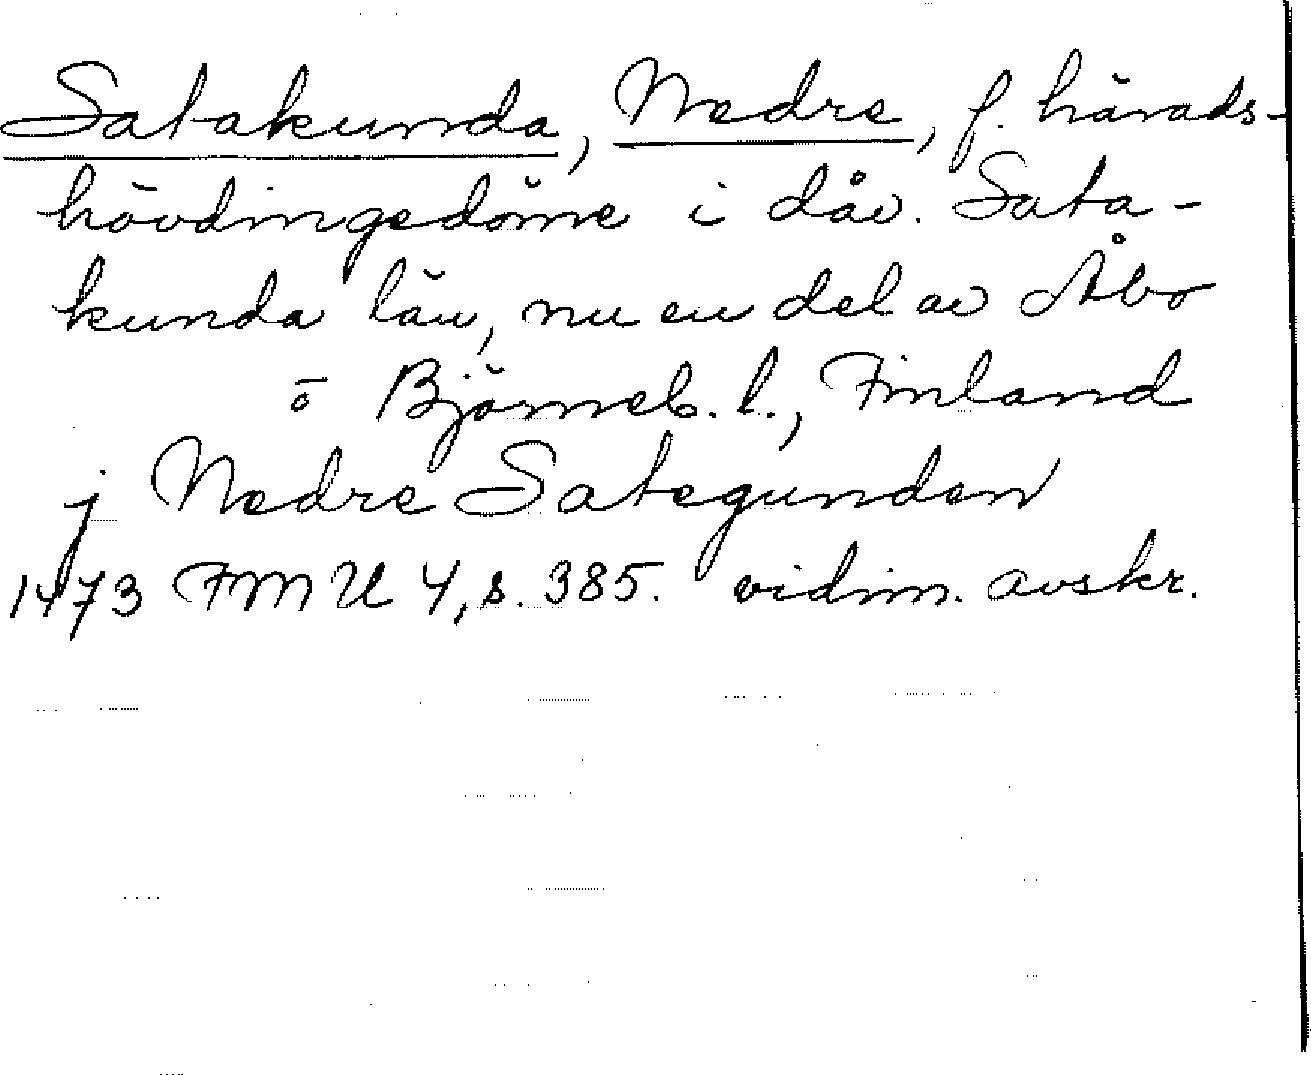 Satakunda, Nedre, f. härads-
hövdingedöme i dåv. Sata-
kunda län, nu en del av Åbo
o Björneb. l., Finland
j Nedre Sategunden
1473 FMU 4, s. 385. vidim. avskr.